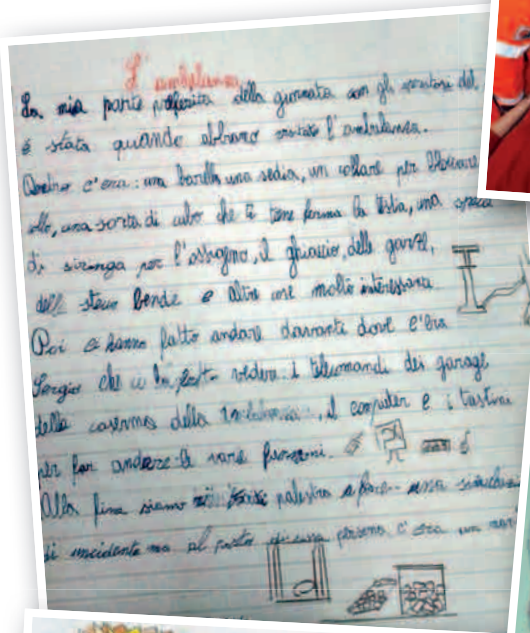 L'ambulanza
La mia parte preferita della giornata con gli del
è stata quando abbiamo visitato l'ambulanza.
Dentro c'era: una barella, una sedia, un collare per bloccare
collo, una sorta di cubo che ti tiene ferma la testa, una specie
di siringa per l'ossigeno, il ghiaccio, delle garze,
delle bende e altre cose molto interessanti.
Poi ci hanno fatto andare davanti dove c'era
Sergio che ci ha fatto vedere i telecomandi dei garage
della caserma della, il computer e i tastini
per far andare le varie funzioni.
Alla fine siamo palestra a fare una simulazione
di incidente ma al posto di una persona c'era un